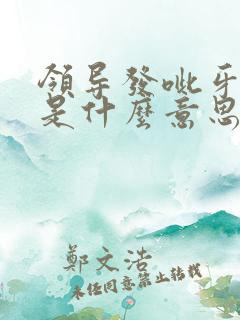 領导發呲牙
是什麼意思
鄭文浩
未经同意禁止转载